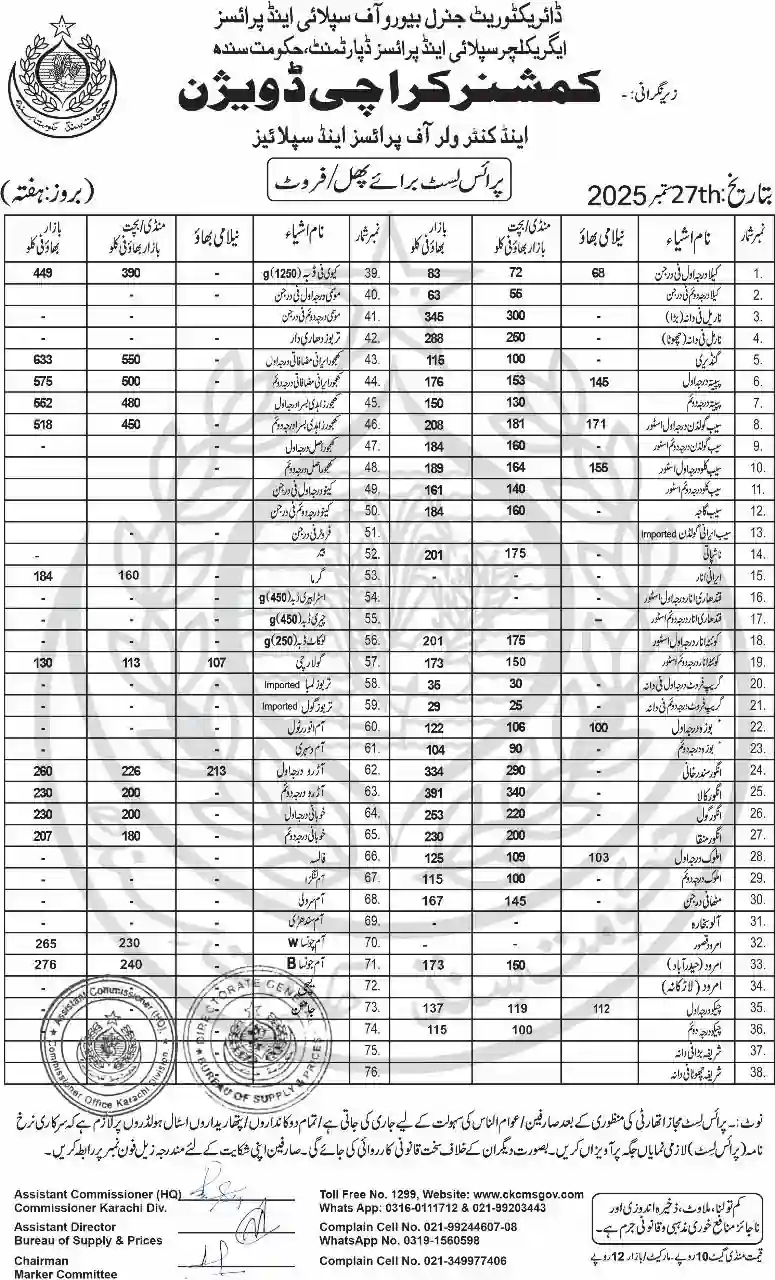 ڈائریکٹوریٹ جنرل بیورو آف سپلائی اینڈ پرائسز
ایگریکلچر سپلائی اینڈ پرائسز ڈپارٹمنٹ، حکومت سندھ
زیر نگرانی: - کمشنر کراچی ڈویژن
اینڈ کنٹرولر آف پرائسز اینڈ سپلائیز
پرائس لسٹ برائے پھل / فروٹ
بتاریخ: 27th ستمبر 2025 (بروز: ہفتہ)
نمبر شمار نام اشیاء نیلامی بھاؤ منڈی/بچت بازار بھاؤ فی کلو بازار بھاؤ فی کلو نمبر شمار نام اشیاء نیلامی بھاؤ منڈی/بچت بازار بھاؤ فی کلو بازار بھاؤ فی کلو
1. کیلا درجہ اول فی درجن 68 72 83 39. کیوی فی ڈبہ g(1250) - 390 449
2. کیلا درجہ دوئم فی درجن - 55 63 40. موسمی درجہ اول فی درجن - - -
3. ناریل فی دانہ (بڑا) - 300 345 41. موسمی درجہ دوئم فی درجن - - -
4. ناریل فی دانہ (چھوٹا) - 250 288 42. تربوز دھاری دار - - -
5. گنڈیری - 100 115 43. کھجور ایرانی مضافاتی درجہ اول - 550 633
6. پپیتہ درجہ اول 145 153 176 44. کھجور ایرانی مضافاتی درجہ دوئم - 500 575
7. پپیتہ درجہ دوئم - 130 150 45. کھجور زاہدی بسر درجہ اول - 480 552
8. سیب گولڈن درجہ اول اسٹور 171 181 208 46. کھجور زاہدی بسر درجہ دوئم - 450 518
9. سیب گولڈن درجہ دوئم - 160 184 47. کھجور اصل درجہ اول - -
10. سیب کلو درجہ اول اسٹور 155 164 189 48. کھجور اصل درجہ دوئم - -
11. سیب کلو درجہ دوئم اسٹور - 140 161 49. کینو درجہ اول فی درجن
12. سیب گاجہ - 160 184 50. کینو درجہ دوئم فی درجن
13. سیب ایرانی گولڈن Imported 51. فروٹر فی درجن - -
14. ناشپاتی - 175 201 52. -
15. ایرانی انار - - - 53. گرما - 160 184
16. قندھاری انار درجہ اول اسٹور 54. اسٹرابیری ڈبہ g(450) - - -
17. قندھاری انار درجہ دوئم اسٹور - 55. چیری ڈبہ g(450) - - -
18. کوئٹہ انار درجہ اول اسٹور - 175 201 56. لوکاٹ ڈبہ g(250) - - -
19. کوئٹہ انار درجہ دوئم اسٹور - 150 173 57. گولارچی 107 113 130
20. گریپ فروٹ درجہ اول فی دانہ - 30 35 58. تربوز لمبا Imported - - -
21. گریپ فروٹ درجہ دوئم فی دانہ - 25 29 59. تربوز گول Imported - - -
22. بوزہ درجہ اول 100 106 122 60. آم انور رٹول - - -
23. بوزہ درجہ دوئم - 90 104 61. آم دسہری - - -
24. انگور سندرخانی - 290 334 62. آڑو درجہ اول 213 226 260
25. انگور کالا - 340 391 63. آڑو درجہ دوئم - 200 230
26. انگور گول - 220 253 64. خوبانی درجہ اول - 200 230
27. انگور منقا - 200 230 65. خوبانی درجہ دوئم - 180 207
28. املوک درجہ اول 103 109 125 66. فالسہ - - -
29. املوک درجہ دوئم - 100 115 67. آم لنگڑا - - -
30. مٹھا فی درجن - 145 167 68. آم سرولی - - -
31. آلو بخارہ - 69. آم سندھڑی - - -
32. امرود قصور - - - 70. آم چونسا W - 230 265
33. امرود (حیدرآباد) - 150 173 71. آم چونسا B - 240 276
34. امرود (لاڑکانہ) 72. لیچی
35. چیکو درجہ اول 112 119 137 73. جامن
36. چیکو درجہ دوئم 100 115 74.
37. شریفہ بڑا فی دانہ 75.
38. شریفہ چھوٹا فی دانہ 76.
Assistant Commissioner (HQ).
Commissioner Office Karachi Division
DIRECTORATE GENERAL
BUREAU OF SUPPLY & PRICES
نوٹ:۔ پرائس لسٹ مجاز اتھارٹی کی منظوری کے بعد صارفین/عوام الناس کی سہولت کے لیے جاری کی جاتی ہے / تمام دوکانداروں / پتھاریداروں اسٹال ہولڈروں پر لازم ہے کہ سرکاری نرخ
نامہ (پرائس لسٹ) لازمی نمایاں جگہ پر آویزاں کریں۔ بصورت دیگر ان کے خلاف سخت قانونی کارروائی کی جائے گی۔ صارفین اپنی شکایت کے لئے مندرجہ زیل فون نمبر پر رابطہ کریں۔
Assistant Commissioner (HQ)
Commissioner Karachi Div.
Assistant Director
Bureau of Supply & Prices
Chairman
Marker Committee
Toll Free No. 1299, Website: www.ckcmsgov.com
Whats App: 0316-0111712 & 021-99203443
Complain Cell No. 021-99244607-08
WhatsApp No. 0319-1560598
Complain Cell No. 021-349977406
کم تولنا، ملاوٹ، ذخیرہ اندوزی اور
ناجائز منافع خوری مذہبی و قانونی جرم ہے۔
قیمت منڈی گیٹ 10 روپے۔ مارکیٹ/بازار 12 روپے